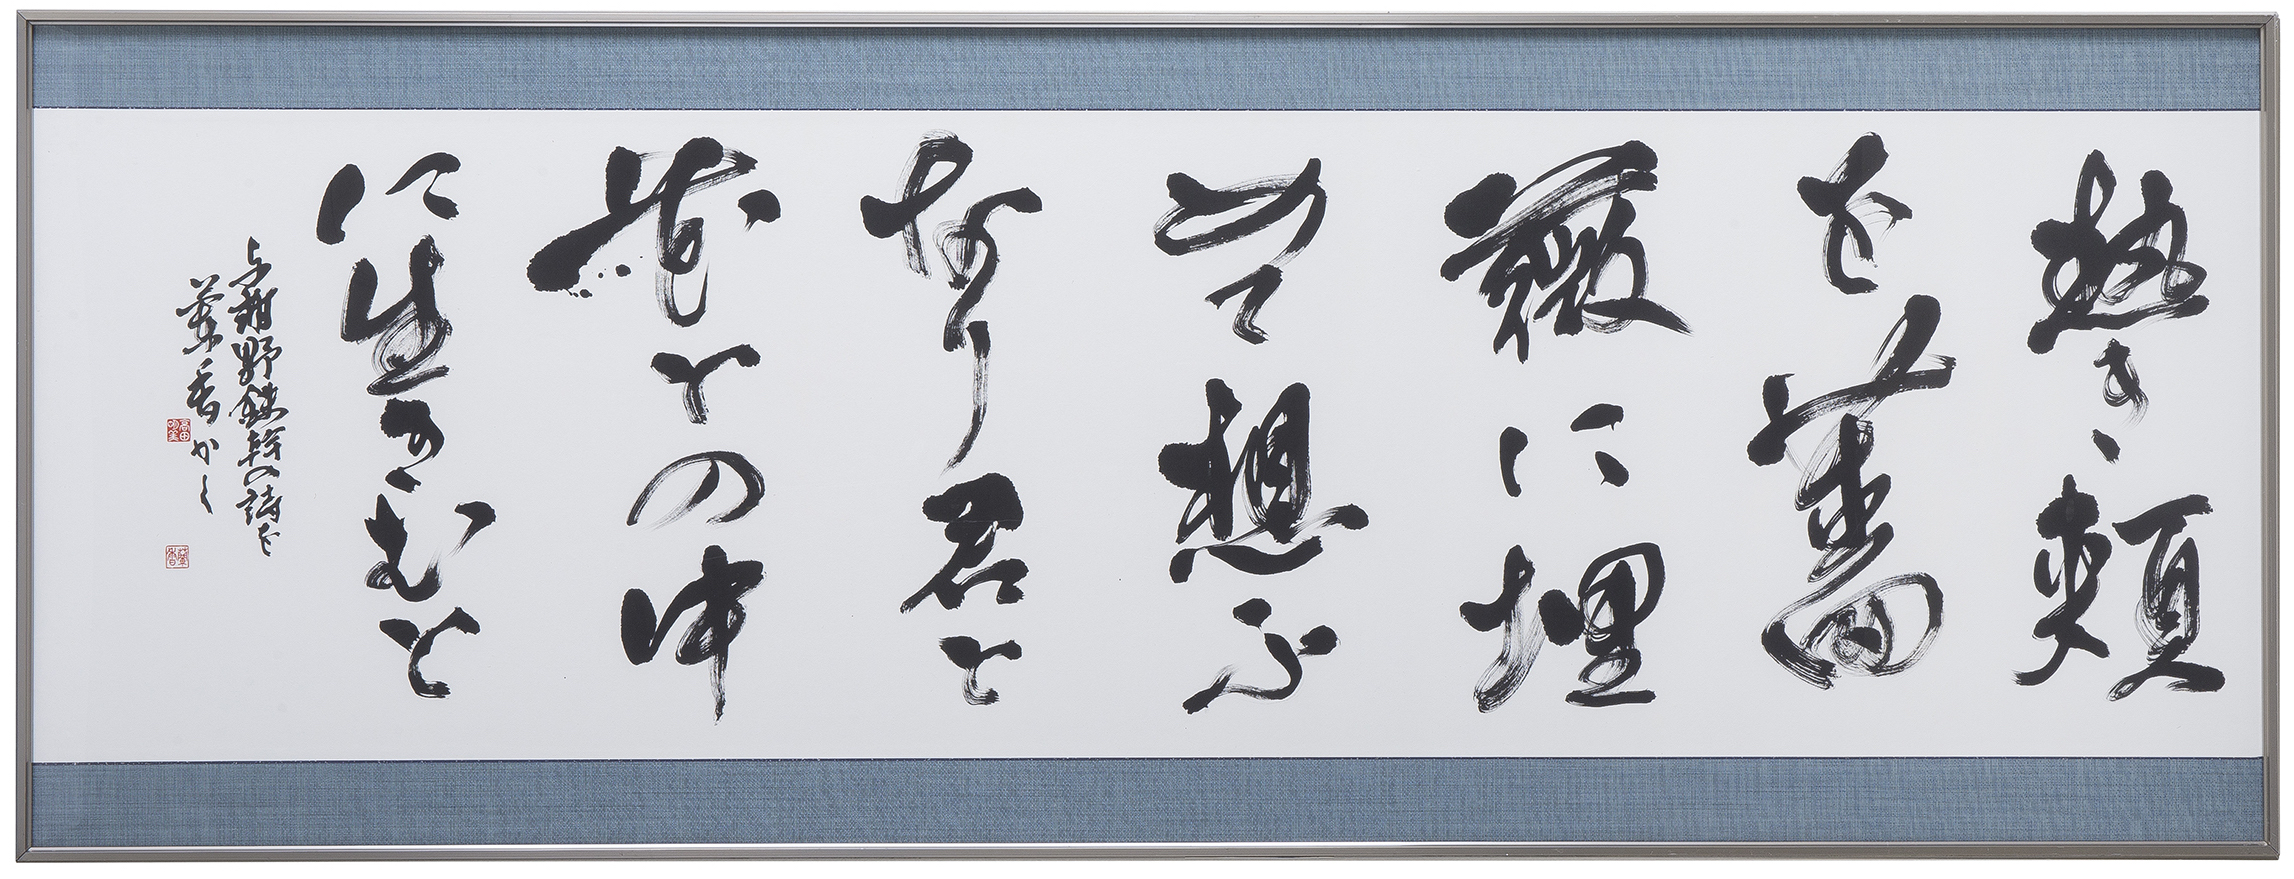 熱き頬
を薔
薇に埋
めて想ふ
なり君と
花との中
に生きむと
与謝野鉄幹の詩を
蘭香かく